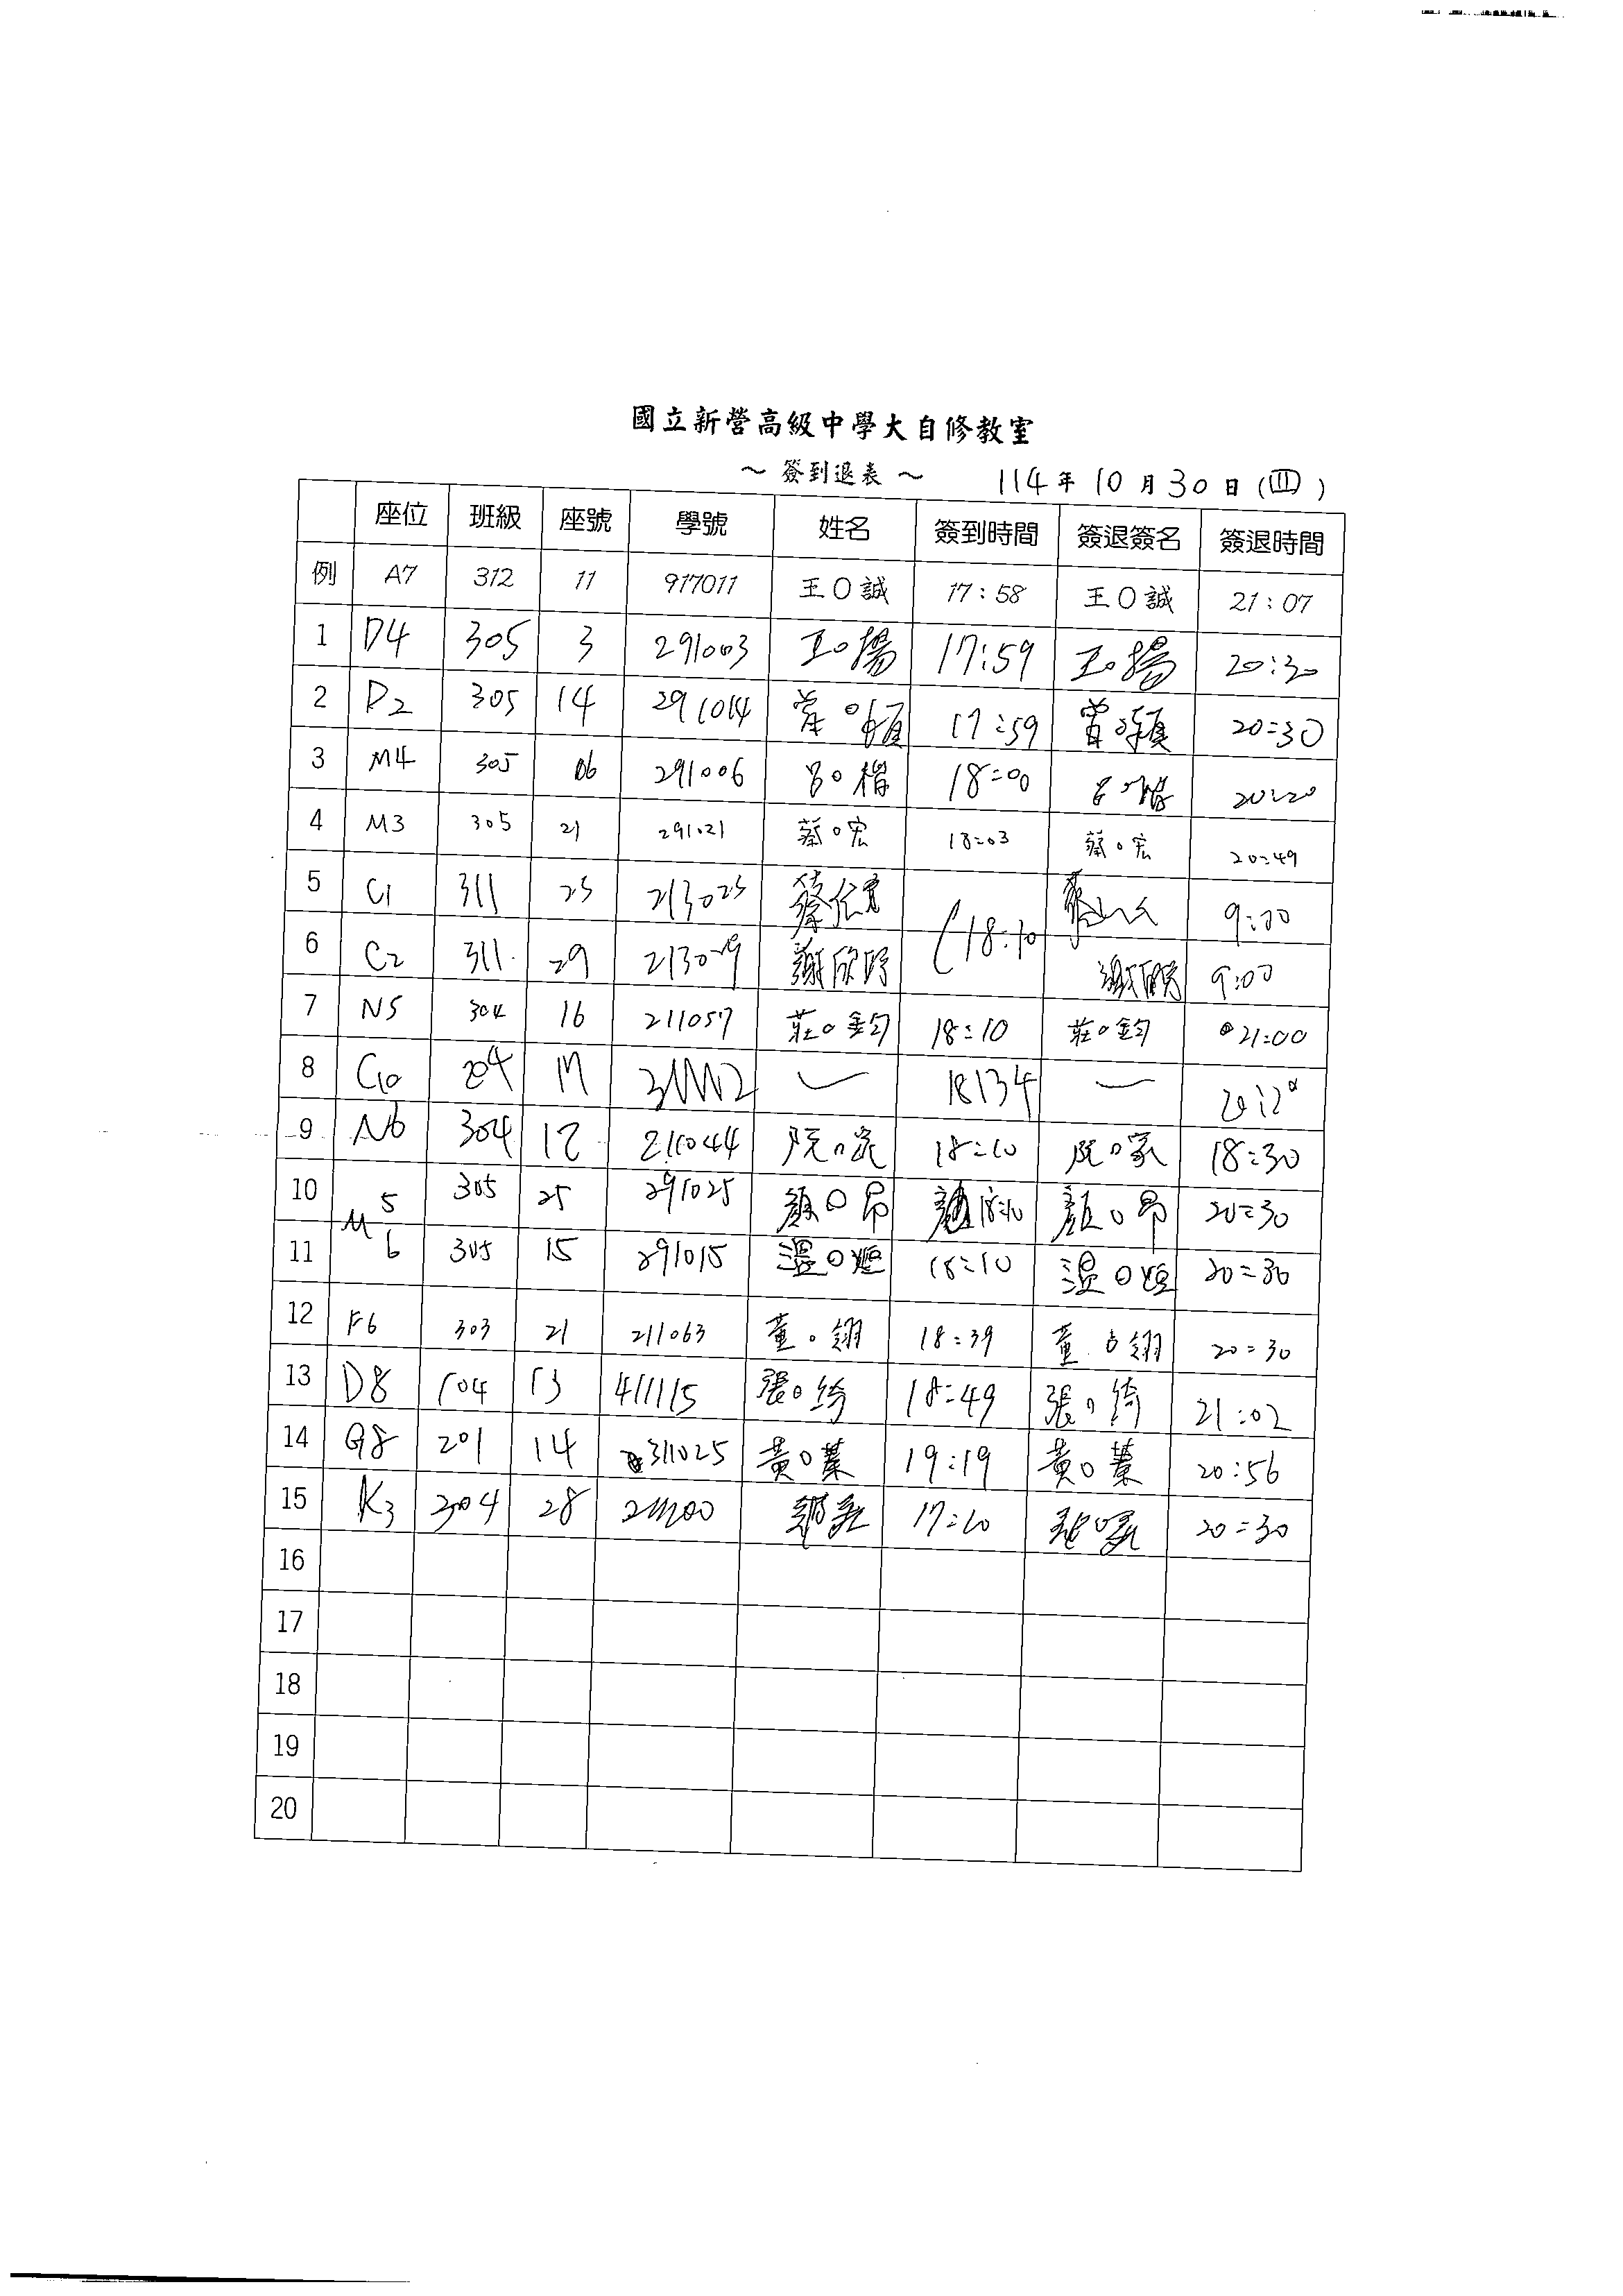 國立新營高級中學大自修教室
～ 簽到退表 ～ 114年10月30日(四)
座位 班級 座號 學號 姓名 簽到時間 簽退簽名 簽退時間
例 A7 312 11 917011 王〇誠 17:58 王〇誠 21:07
1 D4 305 3 291003 王〇揚 17:59 王〇揚 20:30
2 D2 305 14 291014 17:59 20:30
3 M4 305 06 291006 呂〇楷 18:00 呂〇楷 20:20
4 M3 305 21 291021 蔡〇宏 18:03 蔡〇宏 20:49
5 C1 311 25 213025 18:10 9:00
6 C2 311 29 213029 9:00
7 N5 304 16 211057 莊〇鈞 18:10 莊〇鈞 21:00
8 C10 204 17
9 N6 304 12 211044 阮〇家 18:10 阮〇家 18:30
10 M5 305 25 291025 顏〇昂 18:10 顏〇昂 20:30
11 6 305 15 291015 溫〇 18:10 溫〇 20:30
12 F6 303 21 211063 童〇翎 18:39 童〇翎 20:30
13 D8 104 13 411115 張〇綺 18:49 張〇綺 21:02
14 G8 201 14 311025 黃〇蓁 19:19 黃〇蓁 20:56
15 K3 304 28 17:10 20:30
16
17
18
19
20